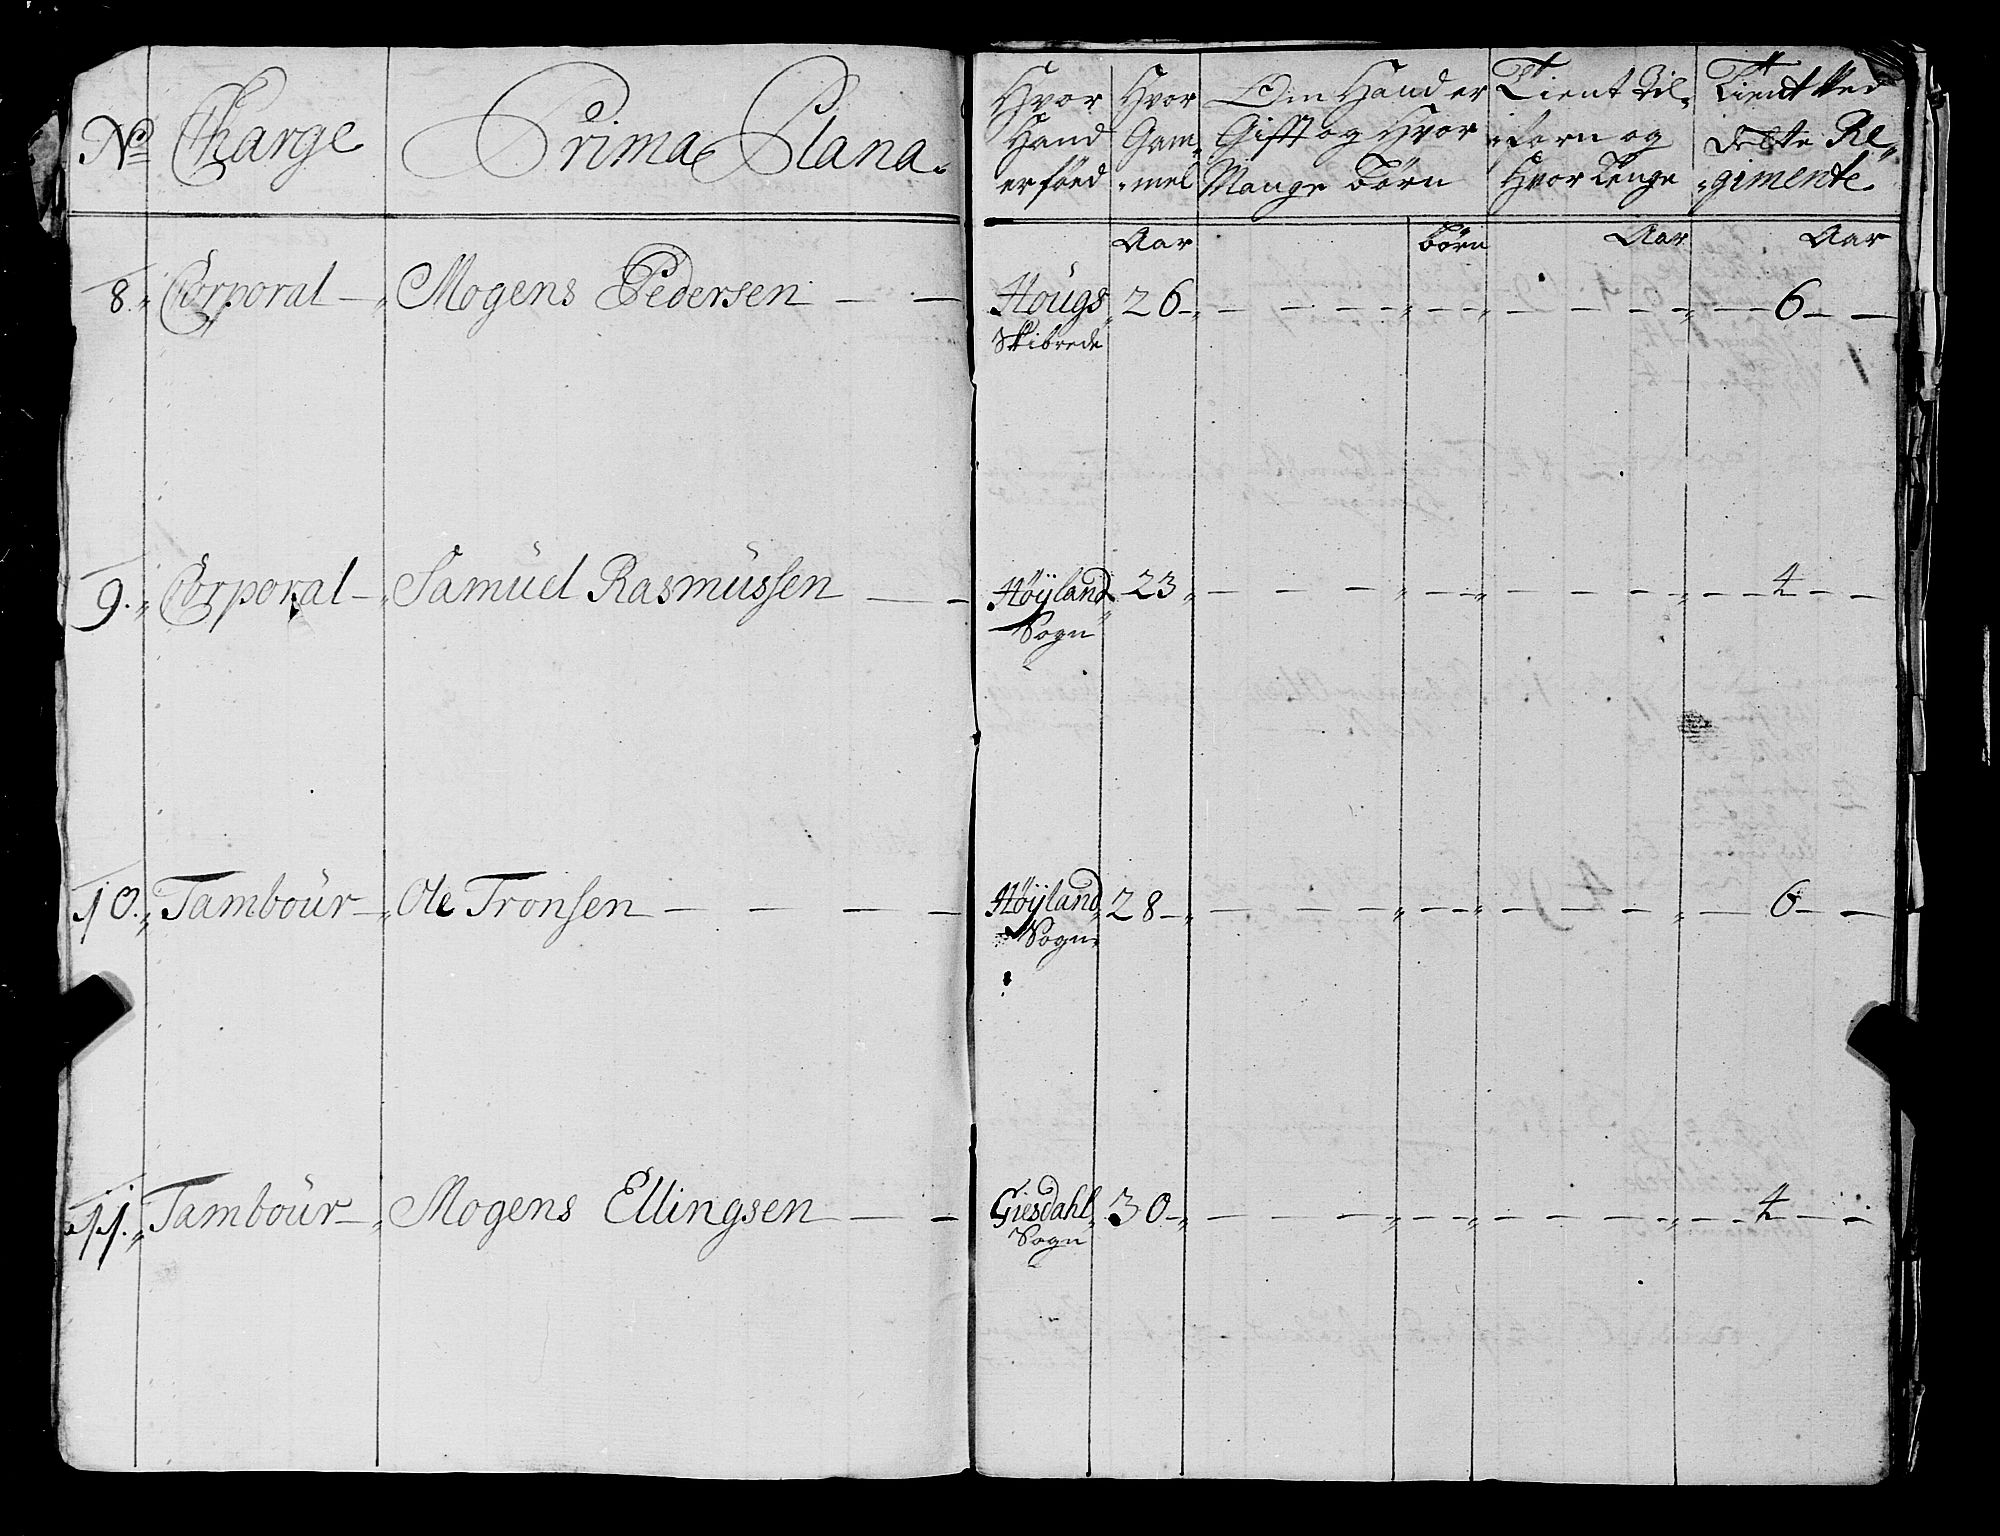 No Charge Prima Plana.
Hvor Hand er föed
Hvor Gam-mel
Om Hand er Gifft og Hvor Mange börn
Tient Til-forn og Hvor Lenge
Tient Ved dette Re-gimente
Aar börn Aar Aar
8. Corporal Mogens Pedersen Hougs 26 6
Skibrede
9. Corporal Samüel Rasmüssen Höÿland 23 4
Sogn
10. Tamboür Ole Tronsen Höÿland 28 6
Sogn
11. Tamboür Mogens Ellingsen Giesdahl 30 4
Sogn